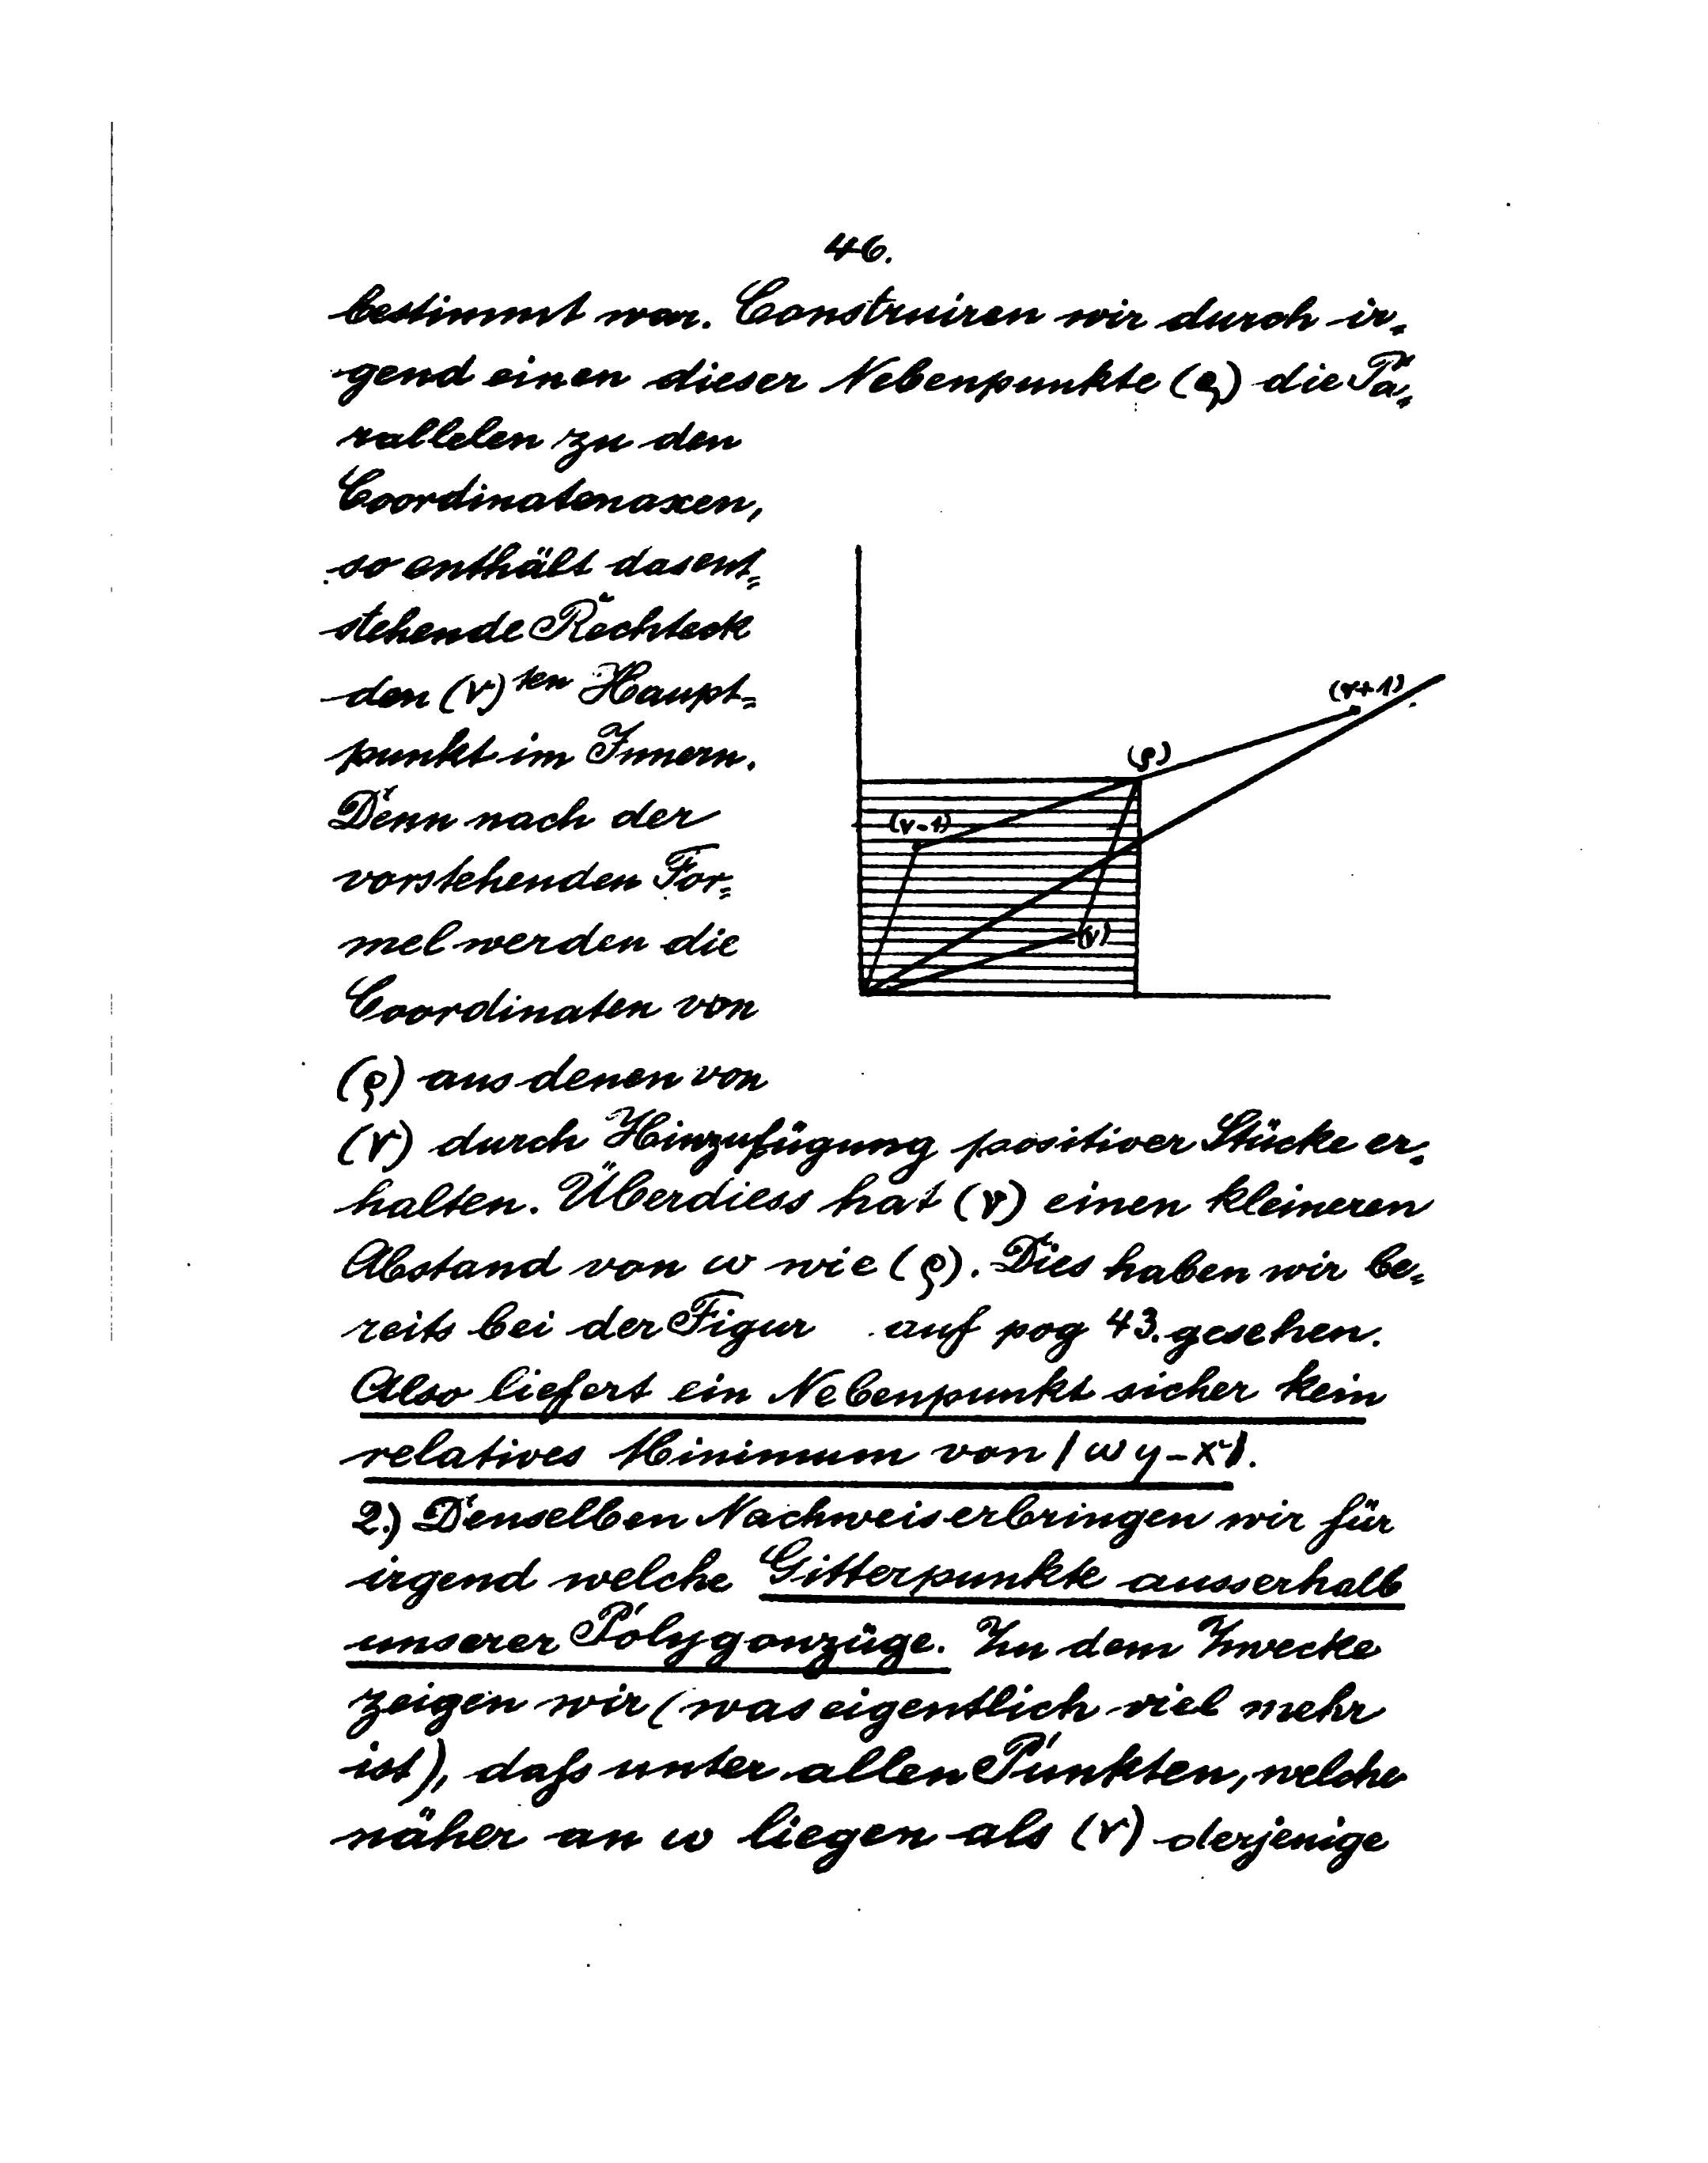 46.
bestimmt war. Construiren wir durch ir=
gend einen dieser Nebenpunkte (ϱ) die Pa=
rallelen zu den
Coordinatenaxen,
so enthält das ent=
stehende Rechteck
den (ν)ten Haupt=
punkt im Innern.
Denn nach der
vorstehenden For=
mel werden die
Coordinaten von
(ϱ) aus denen von
(ν+1)
(ϱ)
(ν-1)
(ν)
(ν) durch Hinzufügung positiver Stücke er=
halten. Überdiess hat (ν) einen kleineren
Abstand von ω wie (ϱ). Dies haben wir be=
reits bei der Figur auf pag 43. gesehen.
Also liefert ein Nebenpunkt sicher kein
relatives Minimum von |ωy-x|.
2.) Denselben Nachweis erbringen wir für
irgend welche Gitterpunkte ausserhalb
unserer Polygonzüge. Zu dem Zwecke
zeigen wir (was eigentlich viel mehr
ist), daß unter allen Punkten, welche
näher an ω liegen als (ν) derjenige